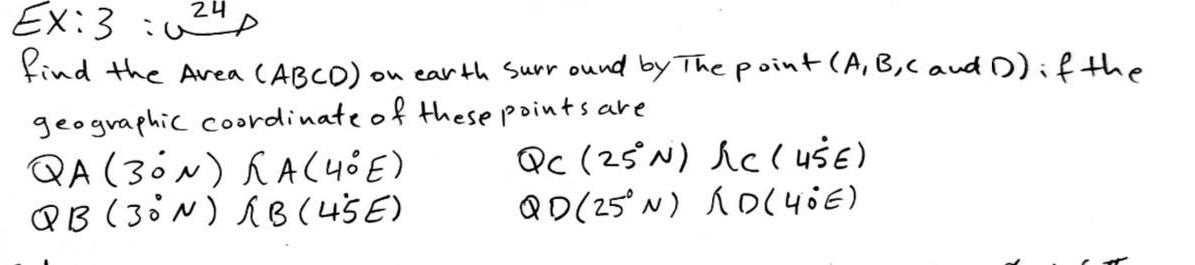 EX:3 : 24
find the Area (ABCD) on earth surround by The point (A, B, C and D) if the
geographic coordinate of these points are
φA (30°N) λA (40°E) φC (25°N) λC (45°E)
φB (30°N) λB (45°E) φD (25°N) λD (40°E)